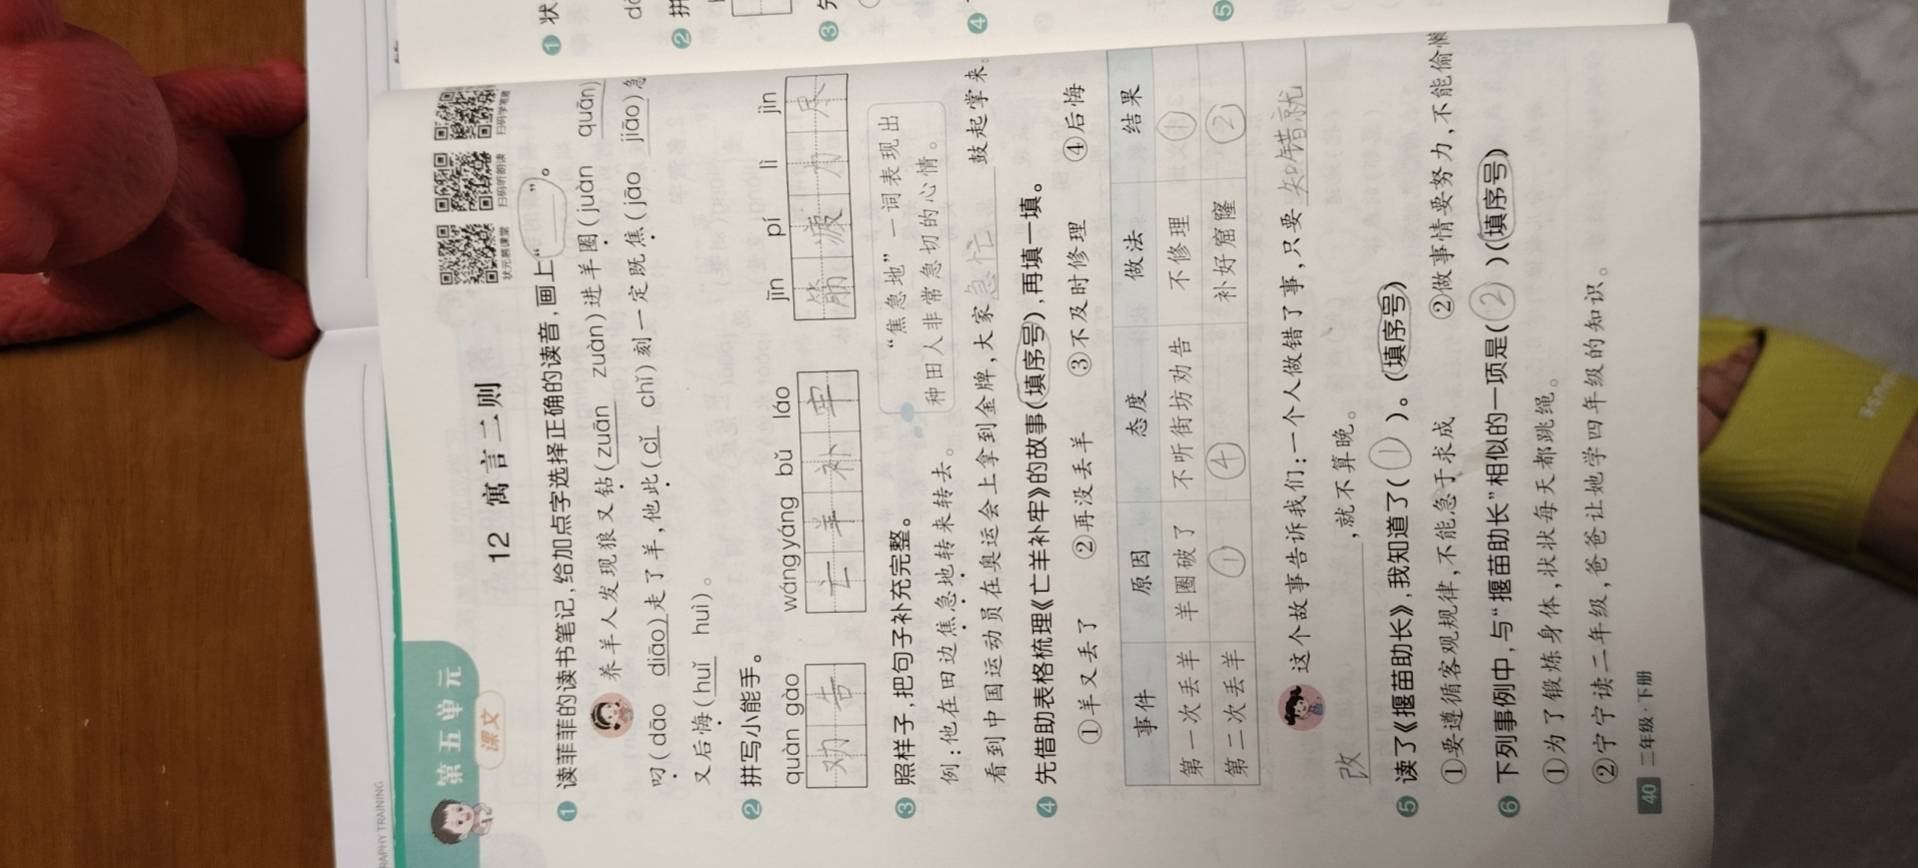 RAPHY TRAINING
第五单元
课文
12 寓言二则
状元易课堂
扫码听朗读
扫码学笔顺
1 读菲菲的读书笔记,给加点字选择正确的读音,画上“__”。
养羊人发现狼又钻(zuān zuàn)进羊圈(juàn quān)
叼(dāo diāo)走了羊,他此(cǐ chǐ)刻一定既焦(jāo jiāo)急
又后悔(huǐ huì)。
2 拼写小能手。
quàn gào wáng yáng bǔ láo jīn pí lì jìn
劝告 亡羊补牢 筋疲力尽
3 照样子,把句子补充完整。
“焦急地”一词表现出
种田人非常急切的心情。
例:他在田边焦急地转来转去。
看到中国运动员在奥运会上拿到金牌,大家急忙鼓起掌来。
4 先借助表格梳理《亡羊补牢》的故事(填序号),再填一填。
①羊又丢了 ②再没丢羊 ③不及时修理 ④后悔
事件 原因 态度 做法 结果
第一次丢羊 羊圈破了 不听街坊劝告 不修理 ①
第二次丢羊 ① ④ 补好窟窿 ②
这个故事告诉我们:一个人做错了事,只要知错就
改,就不算晚。
5 读了《揠苗助长》,我知道了(①)。(填序号)
①要遵循客观规律,不能急于求成 ②做事情要努力,不能偷懒
6 下列事例中,与“揠苗助长”相似的一项是(②)(填序号)
①为了锻炼身体,状状每天都跳绳。
②宁宁读二年级,爸爸让她学四年级的知识。
40 二年级·下册
1 状
2 拼
3
4
5